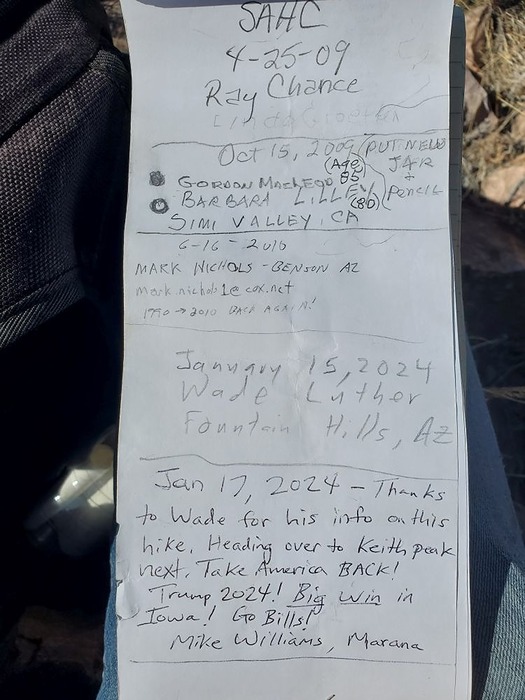 SAHC
4-25-09
Ray Chance
Oct 15, 2009 (PUT NEW
(Age JAR
GORDON MacLEOD 85 +
BARBARA LILLEY (80) Pencil
SIMI VALLEY, CA
6-16-2010
MARK NICHOLS - BENSON AZ
mark.nichols1@cox.net
1990 → 2010 BACK AGAIN!
January 15, 2024
Wade Luther
Fountain Hills, AZ
Jan 17, 2024 - Thanks
to Wade for his info on this
hike. Heading over to Keith peak
next. Take America BACK!
Trump 2024! Big win in
Iowa! Go Bills!
Mike Williams, Marana